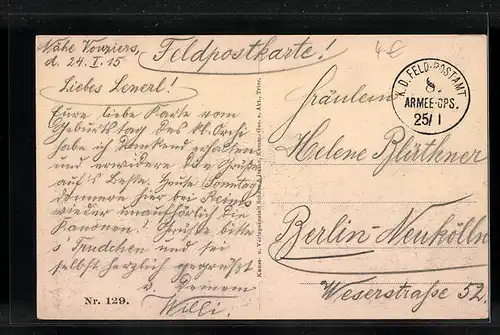 Nähe Vouziers,
d. 24. I. 15
Feldpostkarte!
4 €
Liebes Lenerl!
Eure liebe Karte vom
Geburtstag des kl. Orchi
habe ich dankend erhalten
und erwidere die Grüße
auf's Beste. Heute (Sonntag)
donnern hier bei Reims
wieder unaufhörlich die
Kanonen! Grüße bitte
s' Trudchen und sei
selbst herzlich gegrüßt
v. Deinem
Willi.
Nr. 129.
Kunst- u. Verlagsanstalt Schaar & Dathe, Komm.-Ges. a. Akt., Trier.
K.D. FELD-POSTAMT
8.
ARMEE-CPS.
25/1
Fräulein
Helene Blüthner
Berlin-Neukölln
Weserstraße 52.